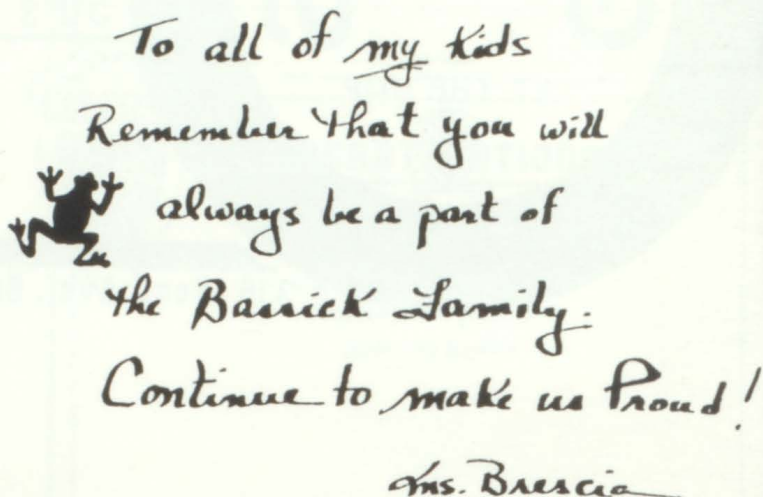 To all of my Kids
Remember that you will
always be a part of
the Barrick Family.
Continue to make us Proud!
Ms. Brescia